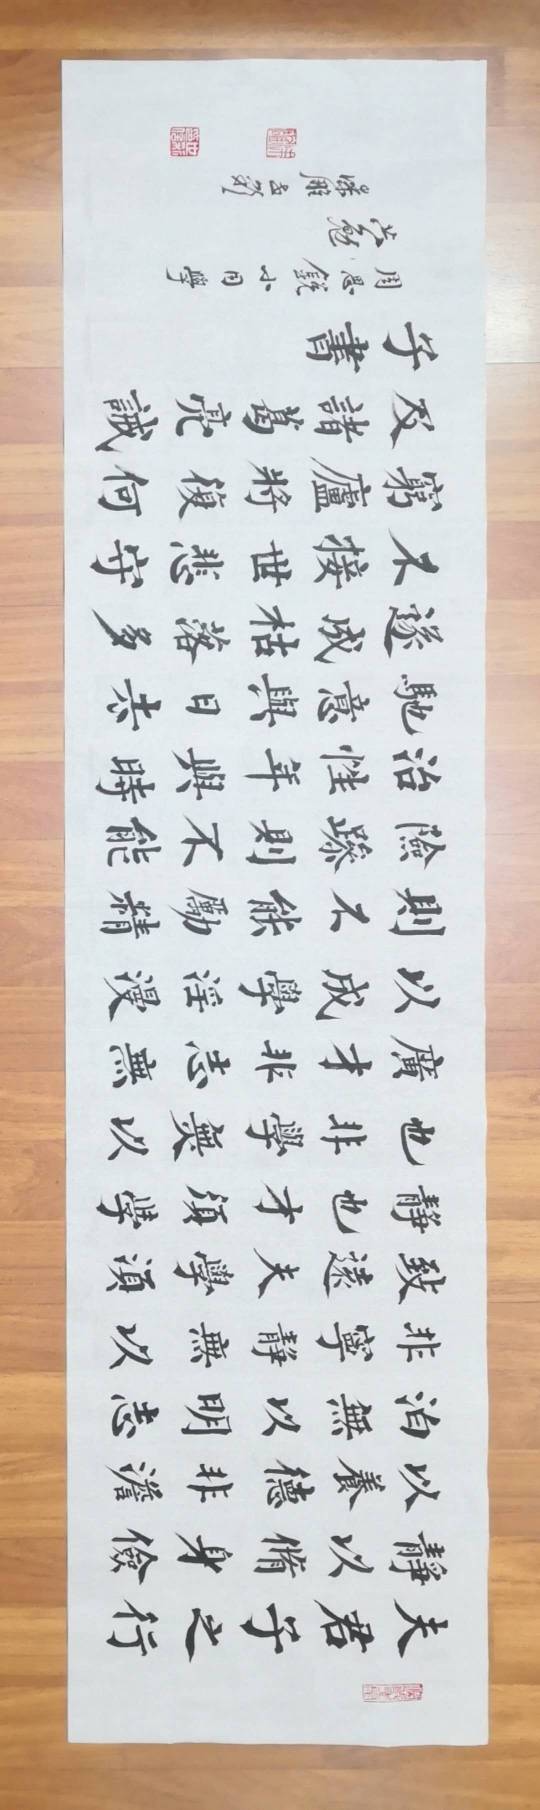 夫君子之行
靜以脩身儉
以養德非澹
泊無以明志
非寧靜無以
致遠夫學須
靜也才須學
也非學無以
廣才非志無
以成學淫漫
則不能勵精
險躁則不能
治性年與時
馳意與日去
遂成枯落多
不接世悲守
窮廬將復何
及諸葛亮誡
子書
周思銳小同學
共勉